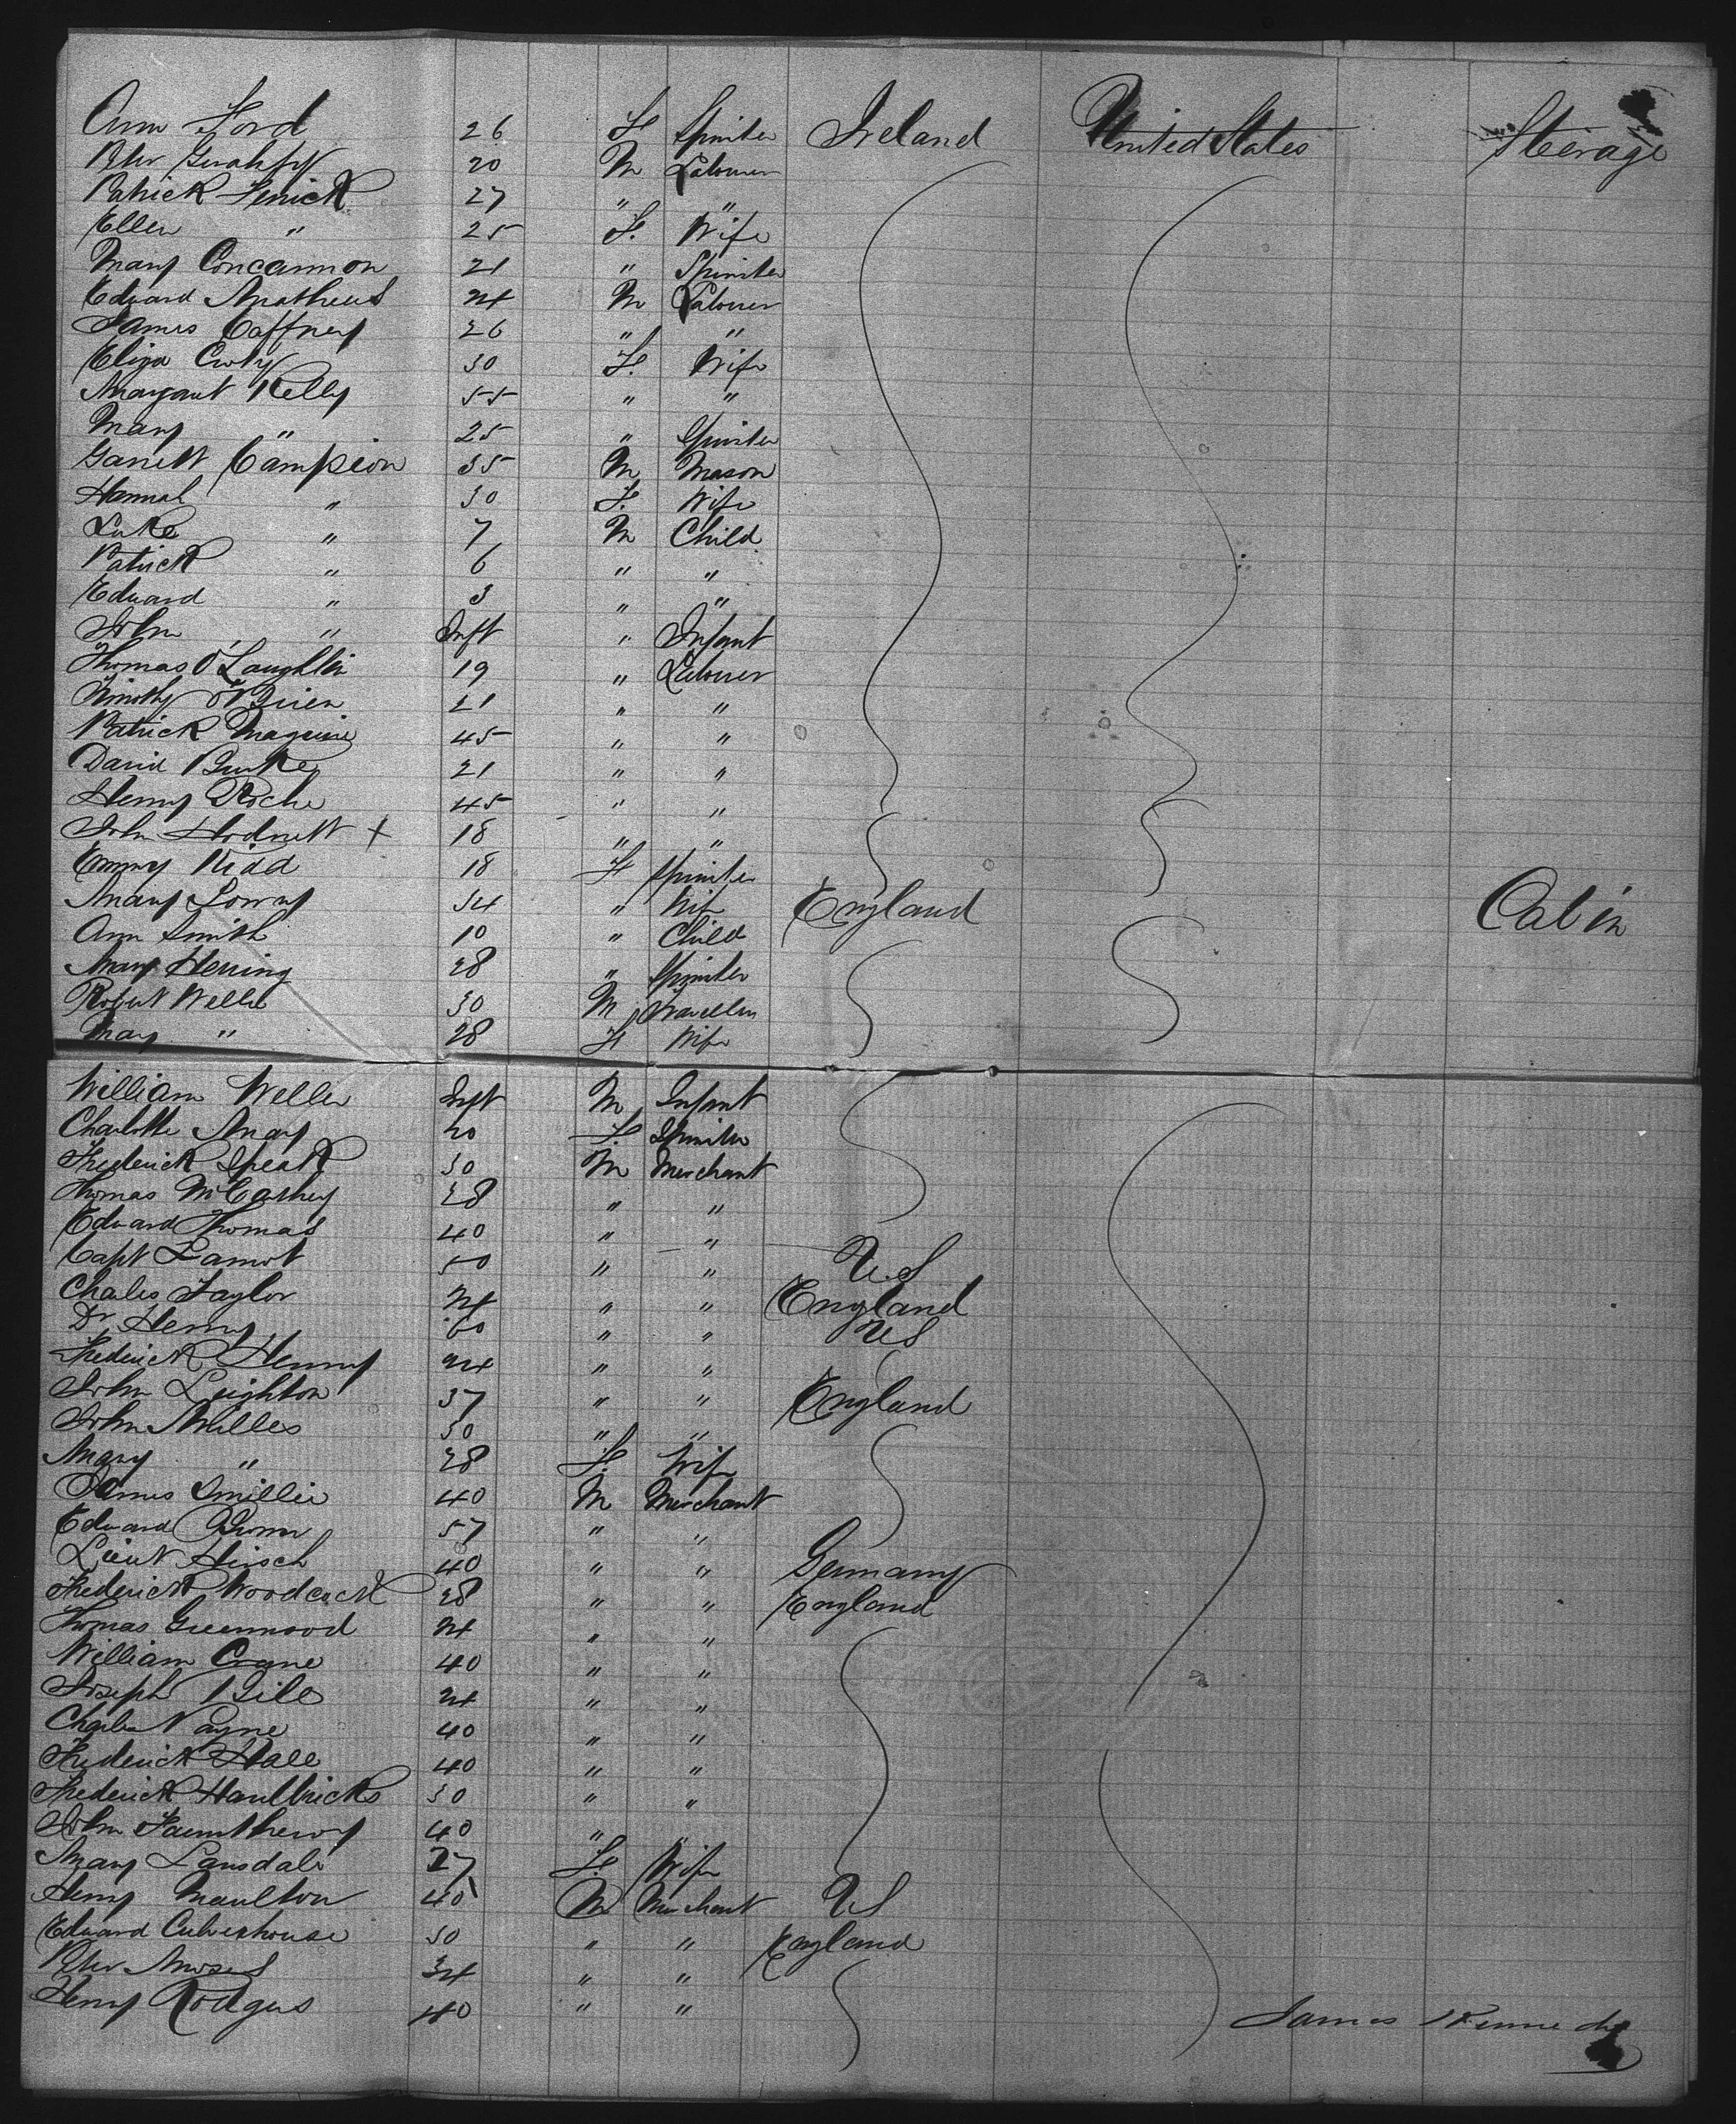 Ann Ford 26 F Spinster Ireland United States Steerage
20 M Labourer
Patrick Fenick 27 " "
Ellen " 25 F. Wife
Mary Concannon 21 " Spinster
Edward Mathews 24 M Labourer
James Caffrey 26 " "
Eliza 30 F. Wife
Margaret Kelly 55 " "
Mary " 25 " Spinster
Garrett Campion 35 M Mason
Hannah " 30 F. Wife
Luke " 7 M Child
Patrick " 6 " "
Edward " 3 " "
John " Inft " Infant
Thomas O'Laughlin 19 " Labourer
Timothy O'Brien 21 " "
Patrick Maguire 45 " "
David Burke 21 " "
Henry Roche 45 " "
John Hodnett + 18 " "
Emmy Kidd 18 F Spinster
Mary Lowry 34 " Wife England Cabin
Ann Smith 10 " Child
Mary Herring 28 " Spinster
Robert Weller 30 M Traveller
Mary " 28 F Wife
William Weller Inft M Infant
Charlotte May 20 F. Spinster
Frederick Speak 30 M Merchant
Thomas McCarthey 28 " "
Edward Thomas 40 " "
Capt Lamot 50 " " U.S
Charles Taylor 24 " " England
Dr Henry 60 " " US
Frederick Henry 24 " "
John Leighton 37 " " England
John Milles 30 " "
Mary " 28 F. Wife
James Smillie 40 M Merchant
Edward 57 " "
Lieut Hirsch 40 " " Germany
Frederick Woodcock 28 " " England
Thomas Greenwood 24 " "
William Crane 40 " "
Joseph Bile 24 " "
Charles Payne 40 " "
Frederick Hale 40 " "
Frederick Haulbricks 30 " "
John 40 " "
Mary Lansdale 27 F. Wife
Henry Maulton 40 M Merchant US
Edward Culverhouse 30 " " England
Peter Moses 34 " "
Henry Rodgers 40 " "
James Kennedy